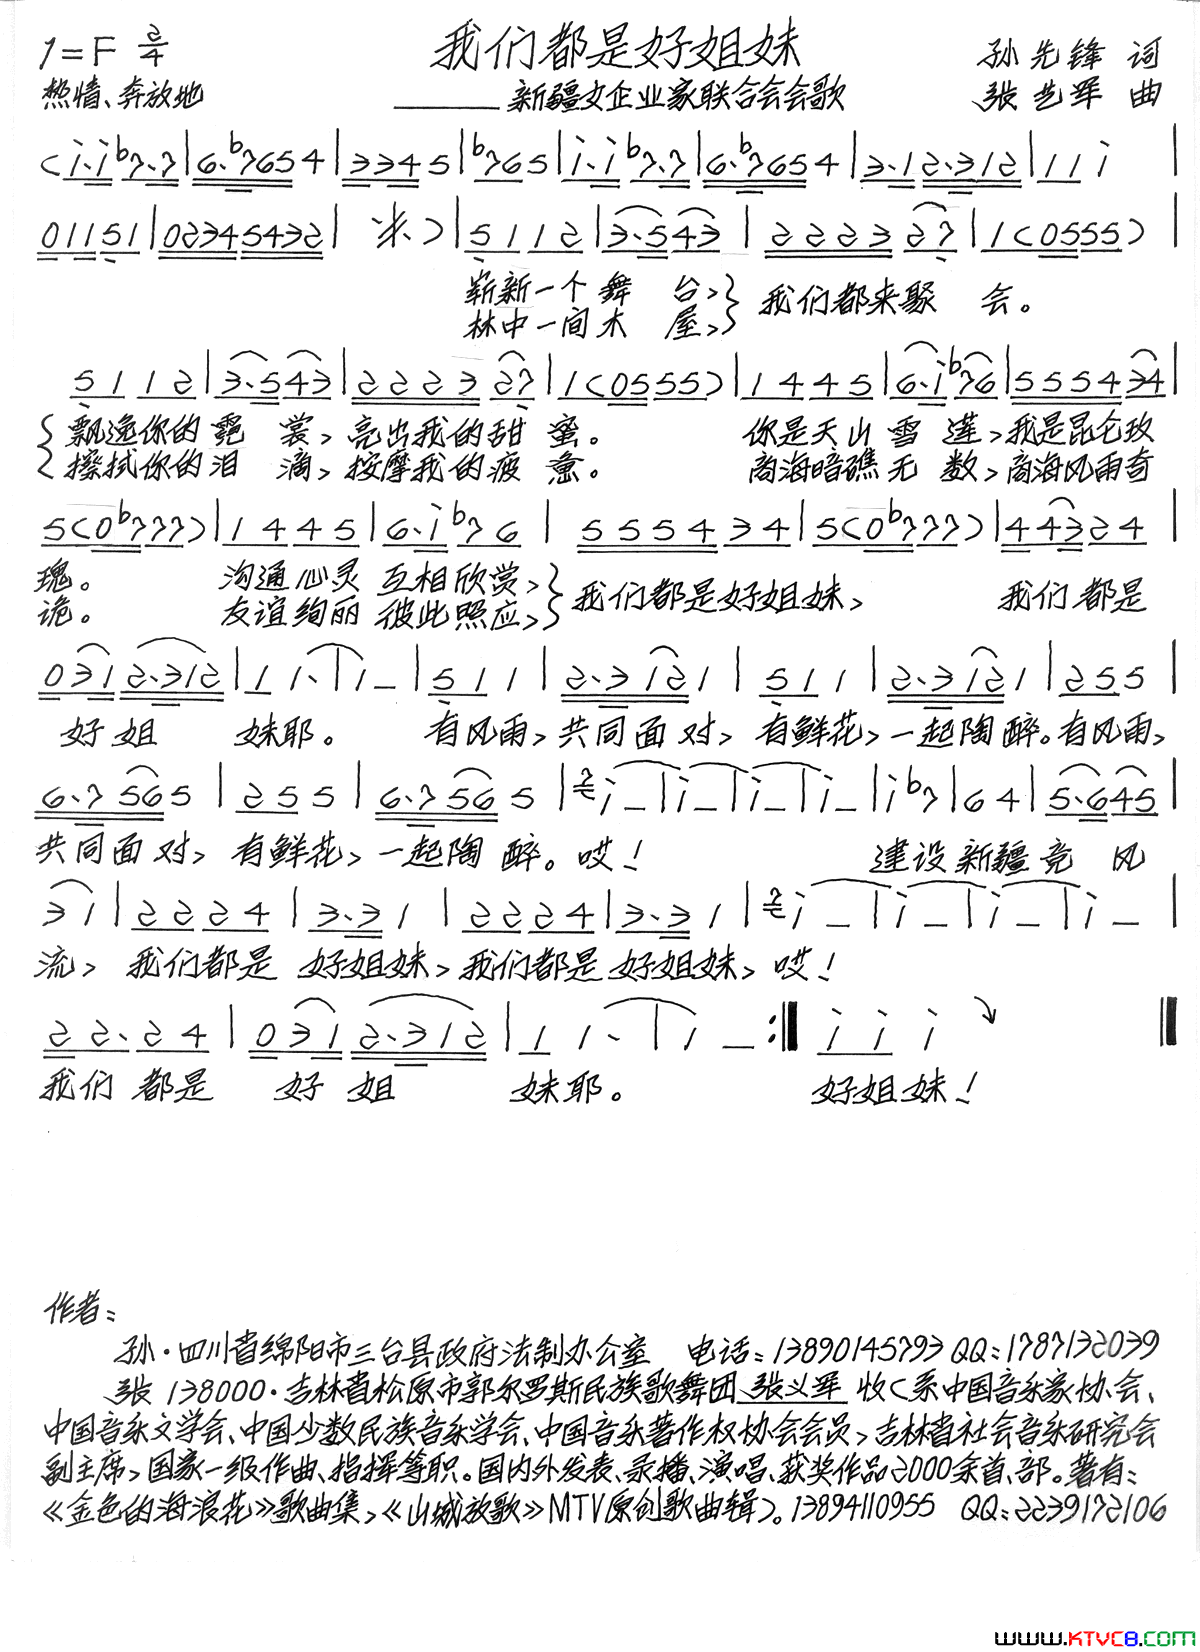 1=F 2/4
我们都是好姐妹
孙先锋 词
热情、奔放地
——新疆女企业家联合会会歌
张艺军 曲
(i·i b7·7|6·b7654|3345|b765|i·i b7·7|6·b7654|3·12·312|11i|
01151|02345432| 米)|5112|3·543|222327|1(0555)|
崭新一个舞 台,}我们都来聚 会。
林中一间木 屋,}
5112|3·543|222327|1(0555)|1445|6·i b76|555434|
{飘逸你的霓 裳,亮出我的甜 蜜。 你是天山雪 莲,我是昆仑玫
{擦拭你的泪 滴,按摩我的疲 惫。 商海暗礁无 数,商海风雨奇
5(0b777)|1445|6·i b76|555434|5(0b777)|44324|
瑰。 沟通心灵 互相欣赏,}我们都是好姐妹、 我们都是
诡。 友谊绚丽 彼此照应,}
031 2·312|11·|1—|511|2·3121|511|2·3121|255|
好姐 妹耶。 有风雨,共同面对,有鲜花,一起陶醉。有风雨,
6·7565|255|6·7565|i—|i—|i—|i—|i b7|64|5·645|
共同面对,有鲜花,一起陶醉。哎! 建设新疆竞 风
31|2224|3·31|2224|3·31|i—|i—|i—|i—|
流, 我们都是 好姐妹、我们都是好姐妹、哎!
22·24|031 2·312|11·|1—:‖iii‖
我们都是 好姐 妹耶。 好姐妹!
作者:
孙·四川省绵阳市三台县政府法制办公室 电话:13890145793 QQ:1787132039
张 138000·吉林省松原市郭尔罗斯民族歌舞团 张义军 收(系中国音乐家协会、
中国音乐文学会、中国少数民族音乐学会、中国音乐著作权协会会员,吉林省社会音乐研究会
副主席,国家一级作曲、指挥等职。国内外发表、录播、演唱、获奖作品2000余首、部。著有:
《金色的海浪花》歌曲集,《山城放歌》MTV原创歌曲辑)。13894110955 QQ:2239172106
www.KTVC8.com